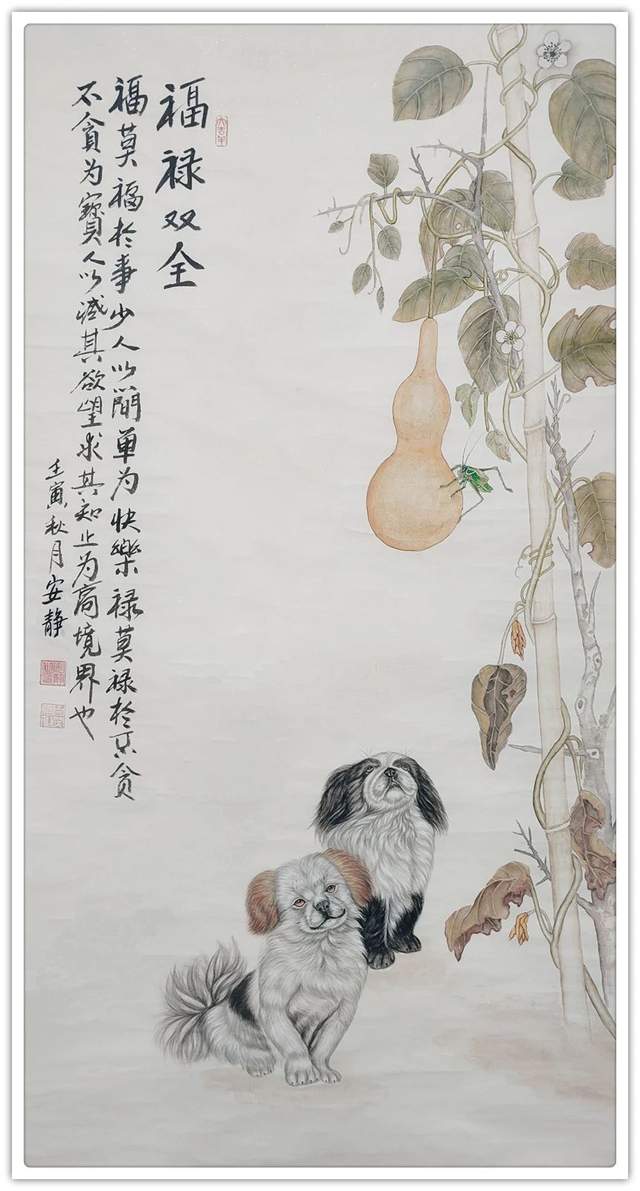 福禄双全
福莫福於事少人以簡单为快樂禄莫禄於不貪
不貪为寶人以减其欲望求其知止为高境界也
壬寅秋月安静